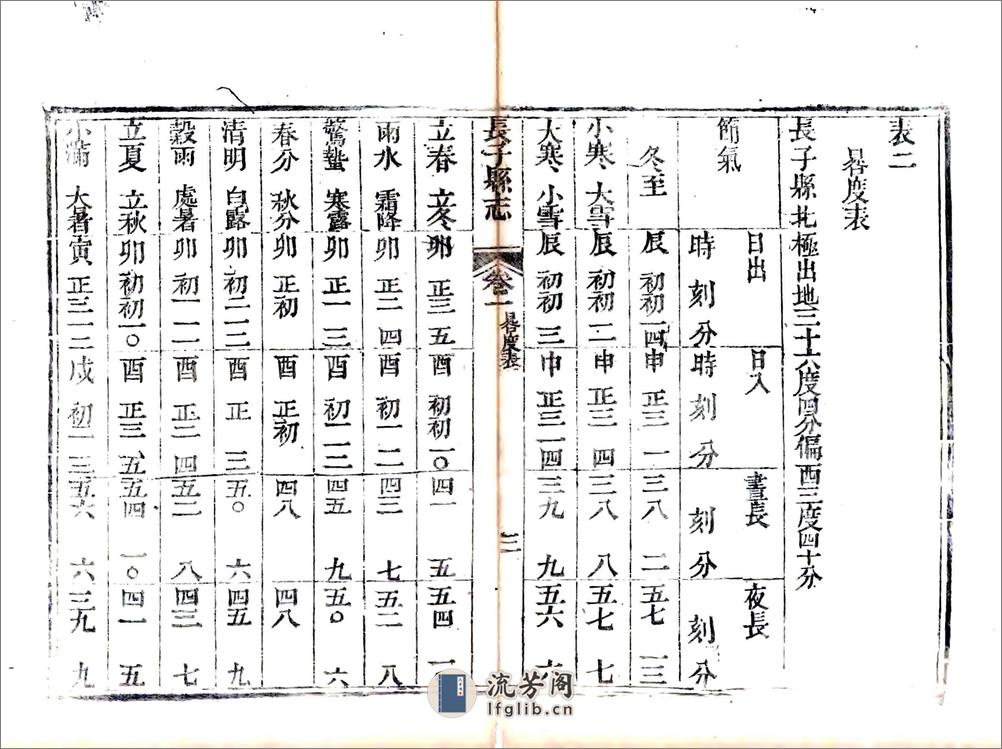 表二
晷度表
長子縣北極出地三十六度四分偏西三度四十分
日出 日入 晝長 夜長
節氣 時刻分 時刻分 刻分 刻分
冬至 辰初初一四 申正三一 三八二 五七一三
小寒 大雪 辰初初二 申正三四 三八八 五七七
大寒 小雪 辰初初三 申正三一四 三九九 五六六
長子縣志 卷一 晷度表
立春 立冬 卯正三五 酉初初一〇 四一五 五四一
雨水 霜降 卯正二四 酉初一一二 四三七 五二八
驚蟄 寒露 卯正一三 酉初二一二 四五九 五〇六
春分 秋分 卯正初 酉正初 四八 四八
清明 白露 卯初二一二 酉正三 五〇六 四五九
穀雨 處暑 卯初一一一 酉正二四 五二八 四三七
立夏 立秋 卯初初一〇 酉正三五 五四一〇 四一五
小滿 大暑 寅正三一二 戌初一三 五六六 三九九
流芳阁
lfglib.cn